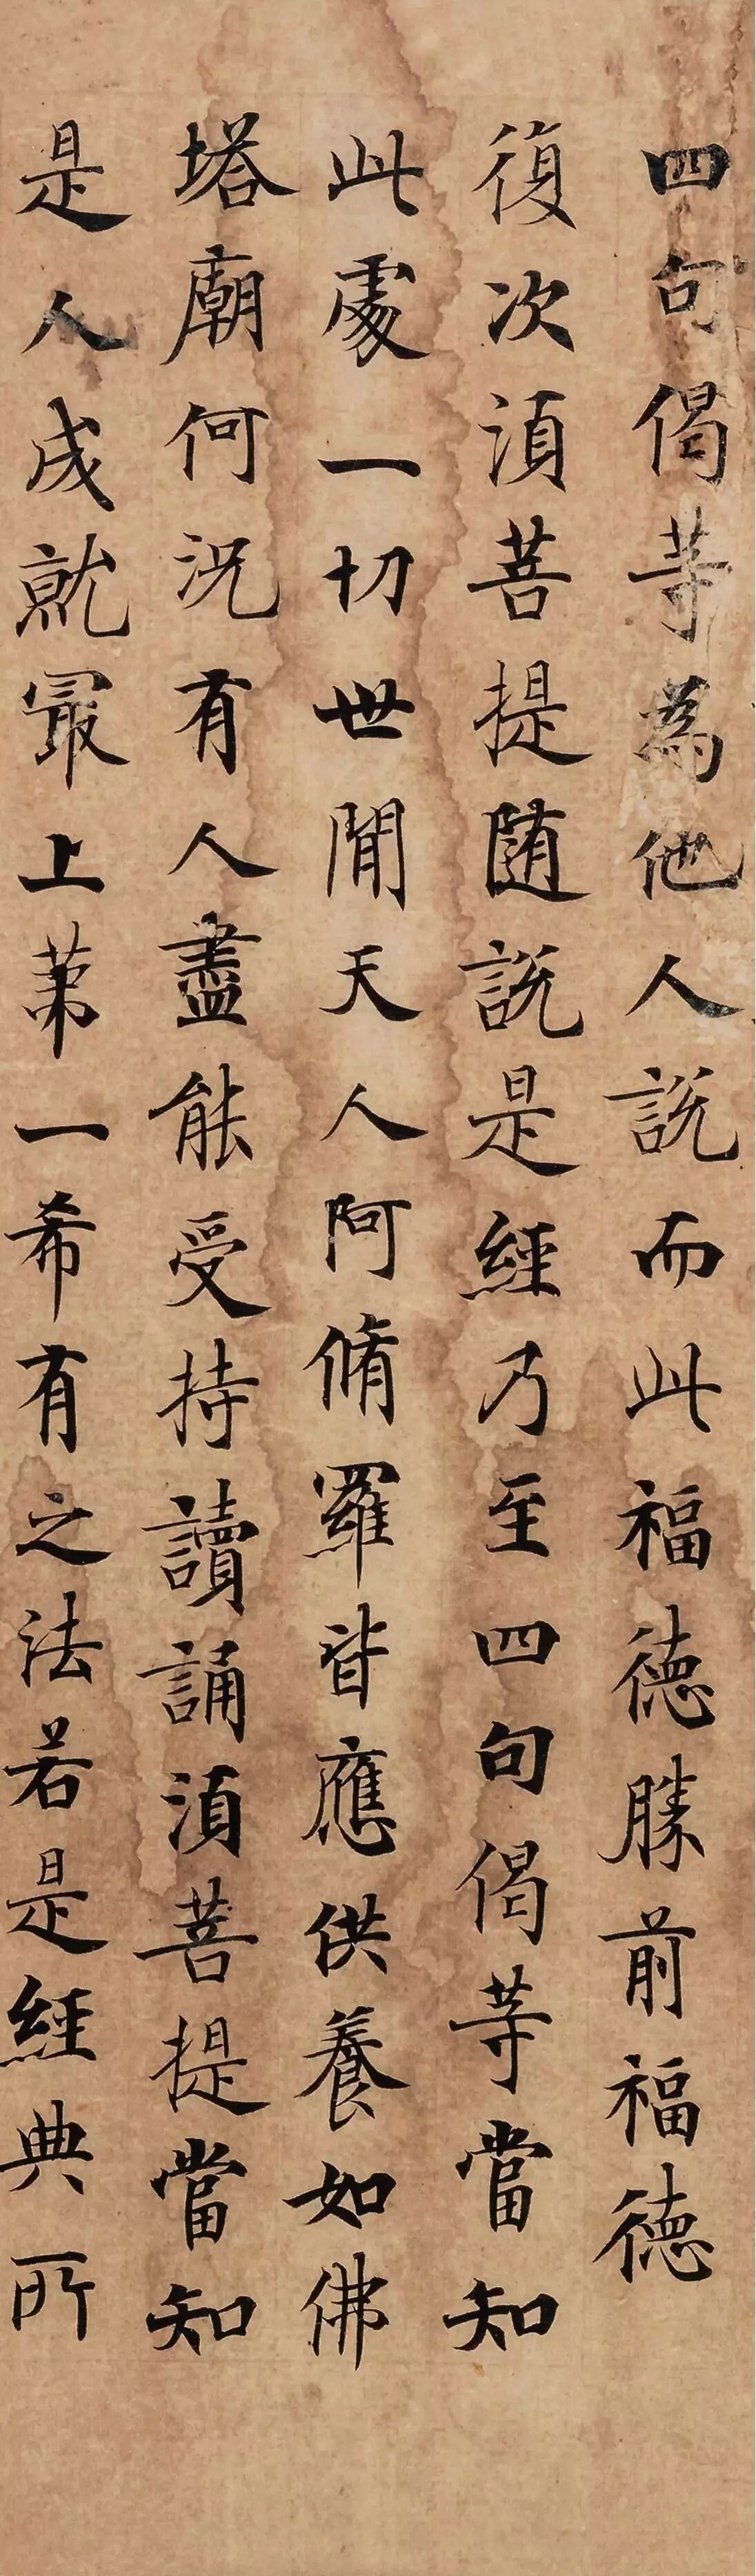 四句偈等為他人說而此福德勝前福德
復次須菩提随說是經乃至四句偈等當知
此處一切世間天人阿脩羅皆應供養如佛
塔廟何況有人盡能受持讀誦須菩提當知
是人成就最上第一希有之法若是經典所